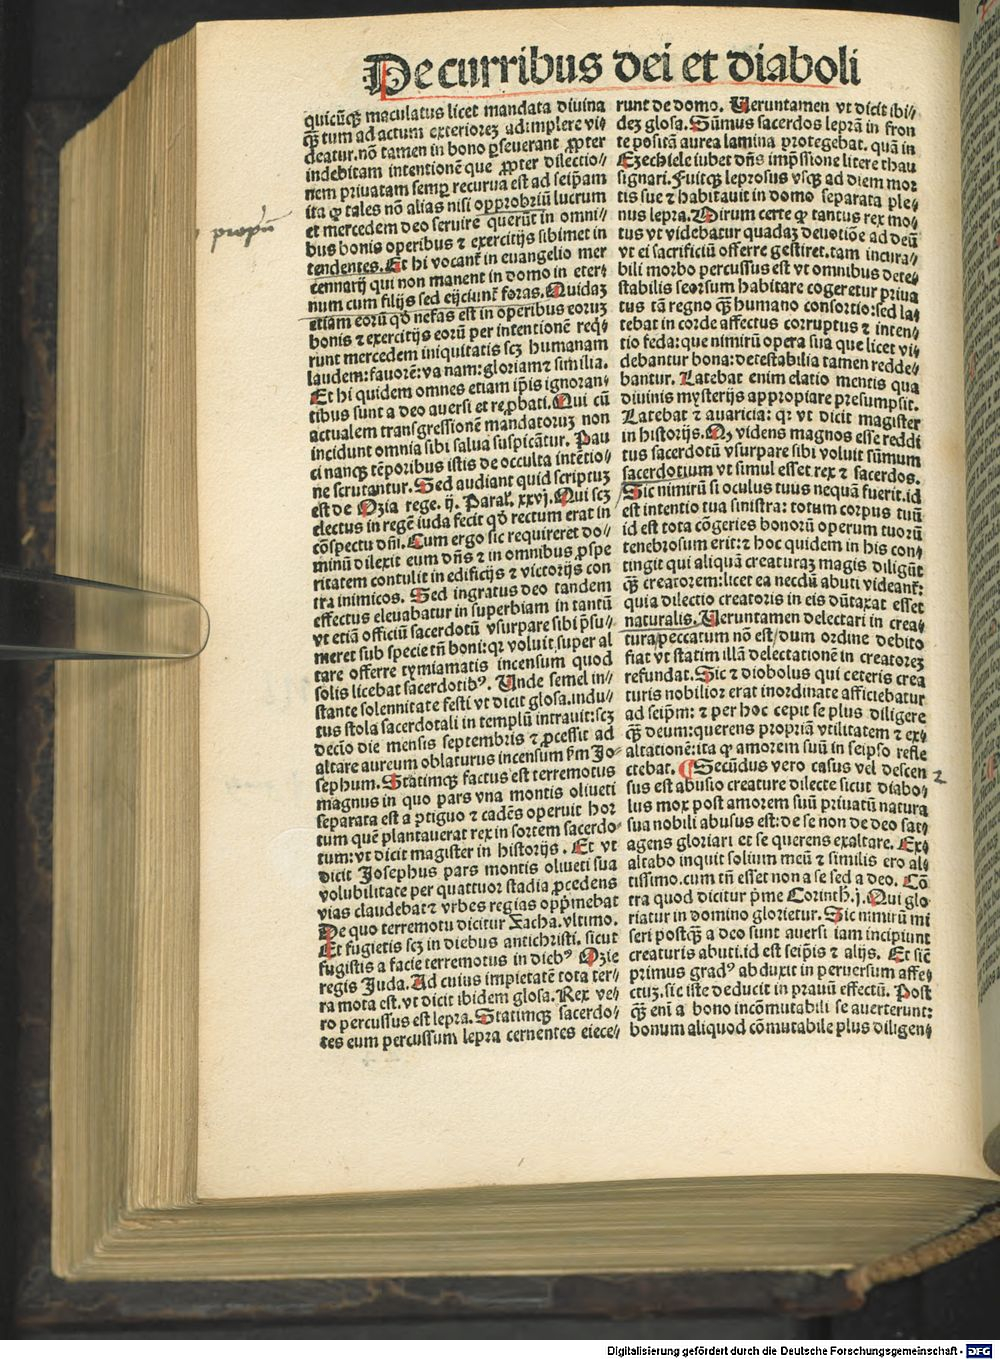 De curribus dei et diaboli
quicūqꝫ maculatus licet mandata diuina
qꝫ̄tum ad actum exterioreꝫ adimplere vi⸗
deatur. nō tamen in bono ꝑseuerant ꝓpter
indebitam intentionē que ꝓpter dilectio⸗
nem priuatam semꝑ recurua est ad seip̄am
ita ꝙ tales nō alias nisi opprobriū lucrum
et mercedem deo seruire querūt in omni⸗
bus bonis operibus ⁊ exercitijs sibimet in
tendentes. Et hi vocant̄ in euangelio mer
cennarij qui non manent in domo in eter⸗
num cum filijs sed eijciunt̄ foras. Quidaꝫ
etiam eorū qd̄ nefas est in operibus eoruꝫ
bonis ⁊ exercitijs eorū per intentionē req̄⸗
runt mercedem iniquitatis scꝫ humanam
laudem: fauorē: va nam: gloriam⁊ similia.
Et hi quidem omnes etiam ip̄is ignoran⸗
tibus sunt a deo auersi et reꝓbati. Qui cū
actualem transgressionē mandatoruꝫ non
incidunt omnia sibi salua suspicātur. Pau
ci nanqꝫ tēporibus istis de occulta intētio⸗
ne scrutantur. Sed audiant quid scriptuꝫ
est de Ozia rege. ij. Paral̄. xxvj. Qui scꝫ
electus in regē iuda fecit qd̄ rectum erat in
cōspectu dn̄i. Cum ergo sic requireret do⸗
minū dilexit eum dn̄s ⁊ in omnibus ꝓspe
ritatem contulit in edificijs ⁊ victorijs con
tra inimicos. Sed ingratus deo tandem
effectus eleuabatur in superbiam in tantū
vt etiā officiū sacerdotū vsurpare sibi p̄su⸗
meret sub specie tn̄ boni: qꝛ voluit super al
tare offerre tymiamatis incensum quod
solis licebat sacerdotibꝰ. Unde semel in⸗
stante solennitate festi vt dicit glosa. indu⸗
tus stola sacerdotali in templū intrauit: scꝫ
decio die mensis septembris ⁊ ꝓcessit ad
altare aureum oblaturus incensum ẜm Jo⸗
sephum. Statimqꝫ factus est terremotus
magnus in quo pars vna montis oliueti
separata est a ꝓtiguo ⁊ cadēs operuit hor
tum quē plantauerat rex in sortem sacerdo⸗
tum: vt dicit magister in historijs. Et vt
dicit Josephus pars montis oliueti sua
volubilitate per quattuor stadia ꝓcedens
vias claudebat⁊ vrbes regias opp̄mebat
De quo terremotu dicitur Zacha. vltimo.
Et fugietis scꝫ in diebus antichristi. sicut
fugistis a facie terremotus in diebꝰ Ozie
regis Juda. Ad cuius impietatē tota ter⸗
ra mota est. vt dicit ibidem glosa. Rex ve⸗
ro percussus est lepra. Statimqꝫ sacerdo⸗
tes eum percussum lepra cernentes eiece⸗
runt de domo. Ueruntamen vt dicit ibi⸗
deꝫ glosa. Sūmus sacerdos leprā in fron
te positā aurea lamina protegebat. quā in
Ezechiele iubet dn̄s imp̄ssione litere thau
signari. Fuitqꝫ leprosus vsqꝫ ad diem mor
tis sue ⁊ habitauit in domo separata ple⸗
nus lepra. Mirum certe ꝙ tantus rex mo⸗
tus vt videbatur quadaꝫ deuotiōe ad deū
vt ei sacrificiū offerre gestiret. tam incura⸗
bili morbo percussus est vt omnibus dete⸗
stabilis seorsum habitare cogeretur priua
tus tā regno qꝫ̄ humano consortio: sed la⸗
tebat in corde affectus corruptus ⁊ inten⸗
tio feda: que nimirū opera sua que licet vi⸗
debantur bona: detestabilia tamen redde⸗
bantur. Latebat enim elatio mentis qua
diuinis mysterijs appropiare presumpsit.
Latebat ⁊ auaricia: qꝛ vt dicit magister
in historijs. Qꝫ videns magnos esse reddi
tus sacerdotū vsurpare sibi voluit sūmum
sacerdotium vt simul esset rex ⁊ sacerdos.
Sic nimirū si oculus tuus nequā fuerit. id
est intentio tua sinistra: totum corpus tuū
id est tota cōgeries bonorū operum tuorū
tenebrosum erit: ⁊ hoc quidem in his con⸗
tingit qui aliquā creaturaꝫ magis diligūt
qꝫ̄ creatorem: licet ea necdū abuti videant̄:
quia dilectio creatoris in eis dūtaxat esset
naturalis. Ueruntamen delectari in crea⸗
tura/peccatum nō est/dum ordine debito
fiat vt statim illā delectationē in creatoreꝫ
refundat. Sic ⁊ diobolus qui ceteris crea
turis nobilior erat inordinate afficiebatur
ad seip̄m: ⁊ per hoc cepit se plus diligere
qꝫ̄ deum: querens propriā vtilitatem ⁊ ex⸗
altationē: ita ꝙ amorem suū in seipso refle
ctebat. ¶ Secūdus vero casus vel descen
sus est abusio creature dilecte sicut diabo⸗
lus mox post amorem suū priuatū natura
sua nobili abusus est: de se non de deo sat⸗
agens gloriari et se querens exaltare. Ex⸗
altabo inquit solium meū ⁊ similis ero al⸗
tissimo. cum tn̄ esset non a se sed a deo. Cō
tra quod dicitur p̄me Corinth. j. Qui glo
riatur in domino glorietur. Sic nimirū mi
seri postqꝫ̄ a deo sunt auersi iam incipiunt
creaturis abuti. id est seip̄is ⁊ alijs. Et sic̄
primus gradꝰ abduxit in peruersum affe⸗
ctuꝫ. sic iste deducit in prauū effectū. Post
qꝫ̄ eni a bono incōmutabili se auerterunt:
bonum aliquod cōmutabile plus diligen⸗
2
Digitalisierung gefördert durch die Deutsche Forschungsgemeinschaft - DFG